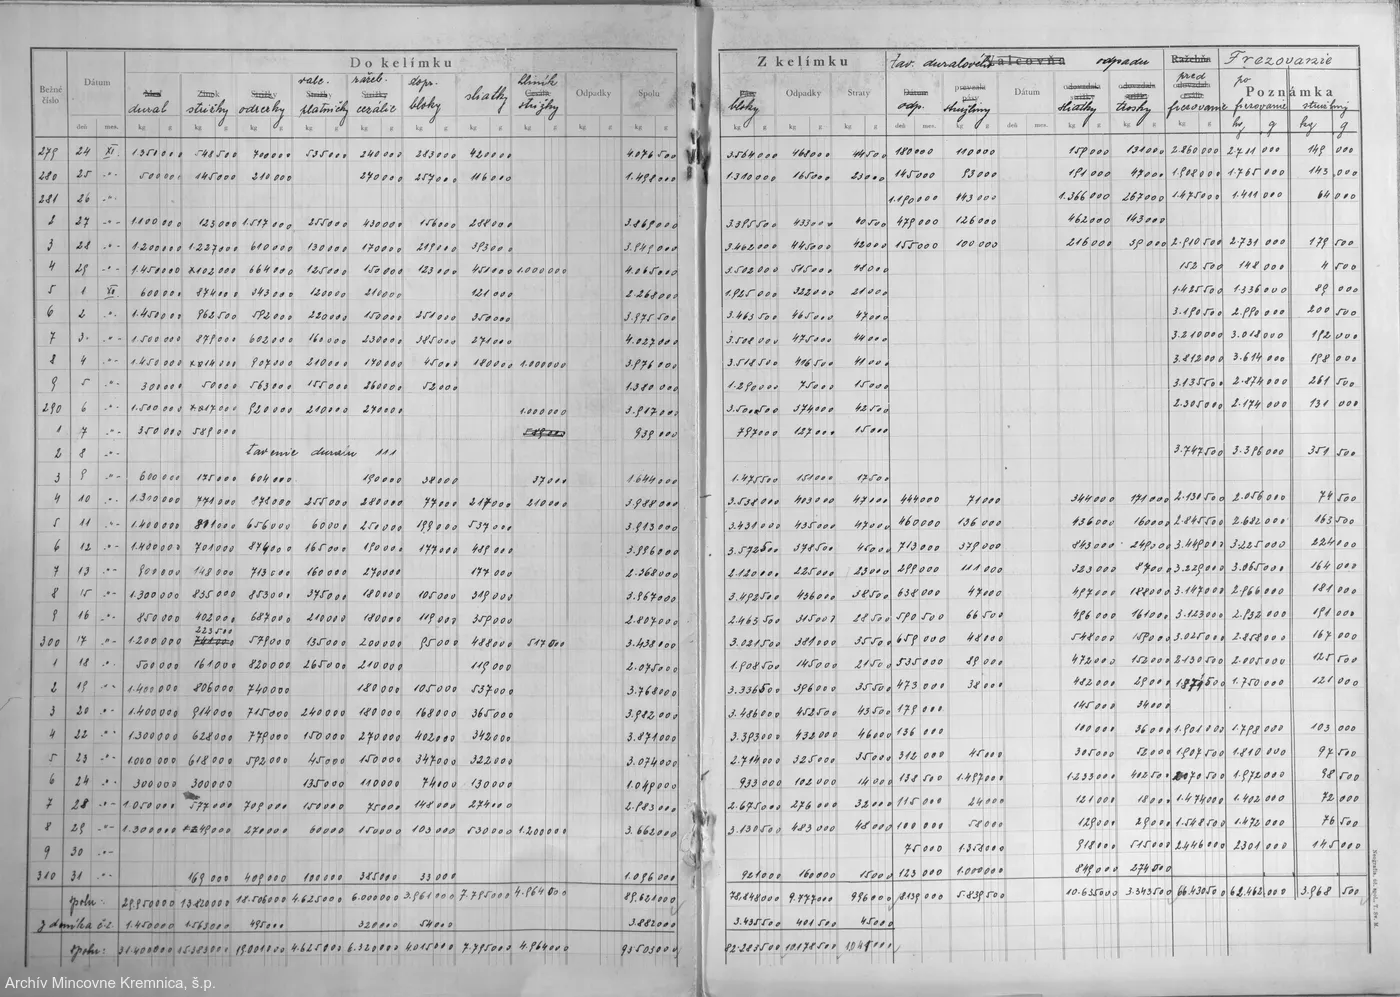 Do kelímku
Z kelímku
tav. duralového Valcovňa odpadu
Ražebňa Frezovanie
Bežné číslo
Dátum
dural
stružky
odrezky
platničky
bloky
sliatky
stružky
Odpadky
Spolu
bloky
Odpadky
Straty
Dátum
odp.
Dátum
sliatky
trosky
pred frezovanie
po frezovanie
Poznámka
deň mes. kg g kg g kg g kg g kg g kg g kg g kg g kg g kg g
279 24 XI. 1.350 000 548 500 700 000 535 000 240 000 283 000 420 000 4.076 500 3.564 000 468 000 44 500 180 000 110 000 159 000 131 000 2.860 000 2.711 000 149 000
280 25 -"- 500 000 145 000 210 000 270 000 257 000 116 000 1.498 000 1.310 000 165 000 23 000 145 000 93 000 191 000 47 000 1.908 000 1.765 000 143 000
281 26 -"- 1.190 000 143 000 1.366 000 267 000 1.475 000 1.411 000 64 000
2 27 -"- 1.100 000 123 000 1.517 000 255 000 430 000 156 000 288 000 3.869 000 3.395 500 433 000 40 500 479 000 126 000 462 000 143 000
3 28 -"- 1.200 000 1.227 000 610 000 130 000 170 000 219 000 393 000 3.949 000 3.462 000 445 000 42 000 155 000 100 000 216 000 39 000 2.910 500 2.731 000 179 500
4 29 -"- 1.450 000 664 000 125 000 150 000 123 000 451 000 1.000 000 4.065 000 3.502 000 515 000 48 000 152 500 148 000 4 500
5 1 XII 600 000 874 000 343 000 120 000 210 000 121 000 2.268 000 1.925 000 322 000 21 000 1.425 500 1.336 000 89 000
6 2 -"- 1.450 000 962 500 592 000 220 000 150 000 251 000 350 000 3.975 500 3.463 500 465 000 47 000 3.190 500 2.990 000 200 500
7 3 -"- 1.500 000 879 000 602 000 160 000 230 000 385 000 271 000 4.027 000 3.508 000 475 000 44 000 3.210 000 3.018 000 192 000
8 4 -"- 1.450 000 907 000 210 000 170 000 45 000 180 000 1.000 000 3.976 000 3.518 500 416 500 41 000 3.812 000 3.614 000 198 000
9 5 -"- 300 000 50 000 563 000 155 000 260 000 52 000 1.380 000 1.290 000 75 000 15 000 3.135 500 2.874 000 261 500
290 6 -"- 1.500 000 920 000 210 000 270 000 1.000 000 3.917 000 3.500 500 374 000 42 500 2.305 000 2.174 000 131 000
1 7 -"- 350 000 589 000 939 000 797 000 127 000 15 000
2 8 -"- tavenie duralu 111 3.747 500 3.396 000 351 500
3 9 -"- 600 000 175 000 604 000 190 000 38 000 37 000 1.644 000 1.475 500 151 000 17 500
4 10 -"- 1.300 000 771 000 878 000 255 000 280 000 77 000 217 000 210 000 3.988 000 3.538 000 403 000 47 000 444 000 71 000 344 000 171 000 2.130 500 2.056 000 74 500
5 11 -"- 1.400 000 656 000 60 000 250 000 199 000 537 000 3.913 000 3.431 000 435 000 47 000 460 000 136 000 436 000 160 000 2.845 500 2.682 000 163 500
6 12 -"- 1.400 000 701 000 874 000 165 000 190 000 177 000 489 000 3.996 000 3.572 500 378 500 45 000 713 000 379 000 843 000 249 000 3.449 000 3.225 000 224 000
7 13 -"- 900 000 148 000 713 000 160 000 270 000 177 000 2.368 000 2.120 000 225 000 23 000 299 000 111 000 323 000 87 000 3.229 000 3.065 000 164 000
8 15 -"- 1.300 000 835 000 853 000 375 000 180 000 105 000 319 000 3.967 000 3.492 500 436 000 38 500 638 000 47 000 497 000 188 000 3.147 000 2.966 000 181 000
9 16 -"- 850 000 402 000 687 000 210 000 180 000 119 000 359 000 2.807 000 2.463 500 315 000 28 500 590 500 66 500 496 000 161 000 3.123 000 2.932 000 191 000
223 500
300 17 -"- 1.200 000 579 000 135 000 200 000 95 000 488 000 517 500 3.438 000 3.021 500 381 000 35 500 659 000 48 000 548 000 159 000 3.025 000 2.858 000 167 000
1 18 -"- 500 000 161 000 820 000 265 000 210 000 119 000 2.075 000 1.908 500 145 000 21 500 535 000 89 000 472 000 152 000 2.130 500 2.005 000 125 500
2 19 -"- 1.400 000 806 000 740 000 180 000 105 000 537 000 3.768 000 3.336 500 396 000 35 500 473 000 38 000 482 000 29 000 1.750 000 121 000
3 20 -"- 1.400 000 914 000 715 000 240 000 180 000 168 000 365 000 3.982 000 3.486 000 452 500 43 500 179 000 145 000 34 000
4 22 -"- 1.300 000 628 000 779 000 150 000 270 000 402 000 342 000 3.871 000 3.393 000 432 000 46 000 136 000 100 000 36 000 1.901 000 1.798 000 103 000
5 23 -"- 1.000 000 618 000 592 000 45 000 150 000 347 000 322 000 3.074 000 2.714 000 325 000 35 000 312 000 45 000 305 000 52 000 1.907 500 1.810 000 97 500
6 24 -"- 300 000 300 000 135 000 110 000 74 000 130 000 1.049 000 933 000 102 000 14 000 138 500 1.497 000 1.233 000 402 500 2.070 500 1.972 000 98 500
7 28 -"- 1.050 000 577 000 709 000 150 000 75 000 148 000 274 000 2.983 000 2.675 000 276 000 32 000 115 000 24 000 121 000 18 000 1.474 000 1.402 000 72 000
8 29 -"- 1.300 000 249 000 270 000 60 000 150 000 103 000 530 000 1.200 000 3.662 000 3.130 500 483 000 48 000 100 000 58 000 129 000 29 000 1.548 500 1.472 000 76 500
9 30 -"- 75 000 1.358 000 918 000 515 000 2446 000 2301 000 145 000
310 31 -"- 169 000 409 000 100 000 385 000 33 000 1.096 000 921 000 160 000 15 000 123 000 1.000 000 849 000 274 000
spolu: 29.950 000 13.820 000 18.506 000 4.625 000 6.000 000 3.961 000 7.795 000 4.964 000 89.621 000 78.848 000 9.777 000 996 000 8139 000 5.839 500 10.635 000 3.343 500 66.430 500 62.462 000 3.968 500
z denníka č. 2. 1.450 000 1.563 000 495 000 320 000 54 000 3.882 000 3.435 500 401 500 45 000
spolu: 31.400 000 15.383 000 19.001 000 4.625 000 6.320 000 4.015 000 7.795 000 4.964 000 93.503 000 82.283 500 10.178 500 1.041 000
Archív Mincovne Kremnica, š.p.